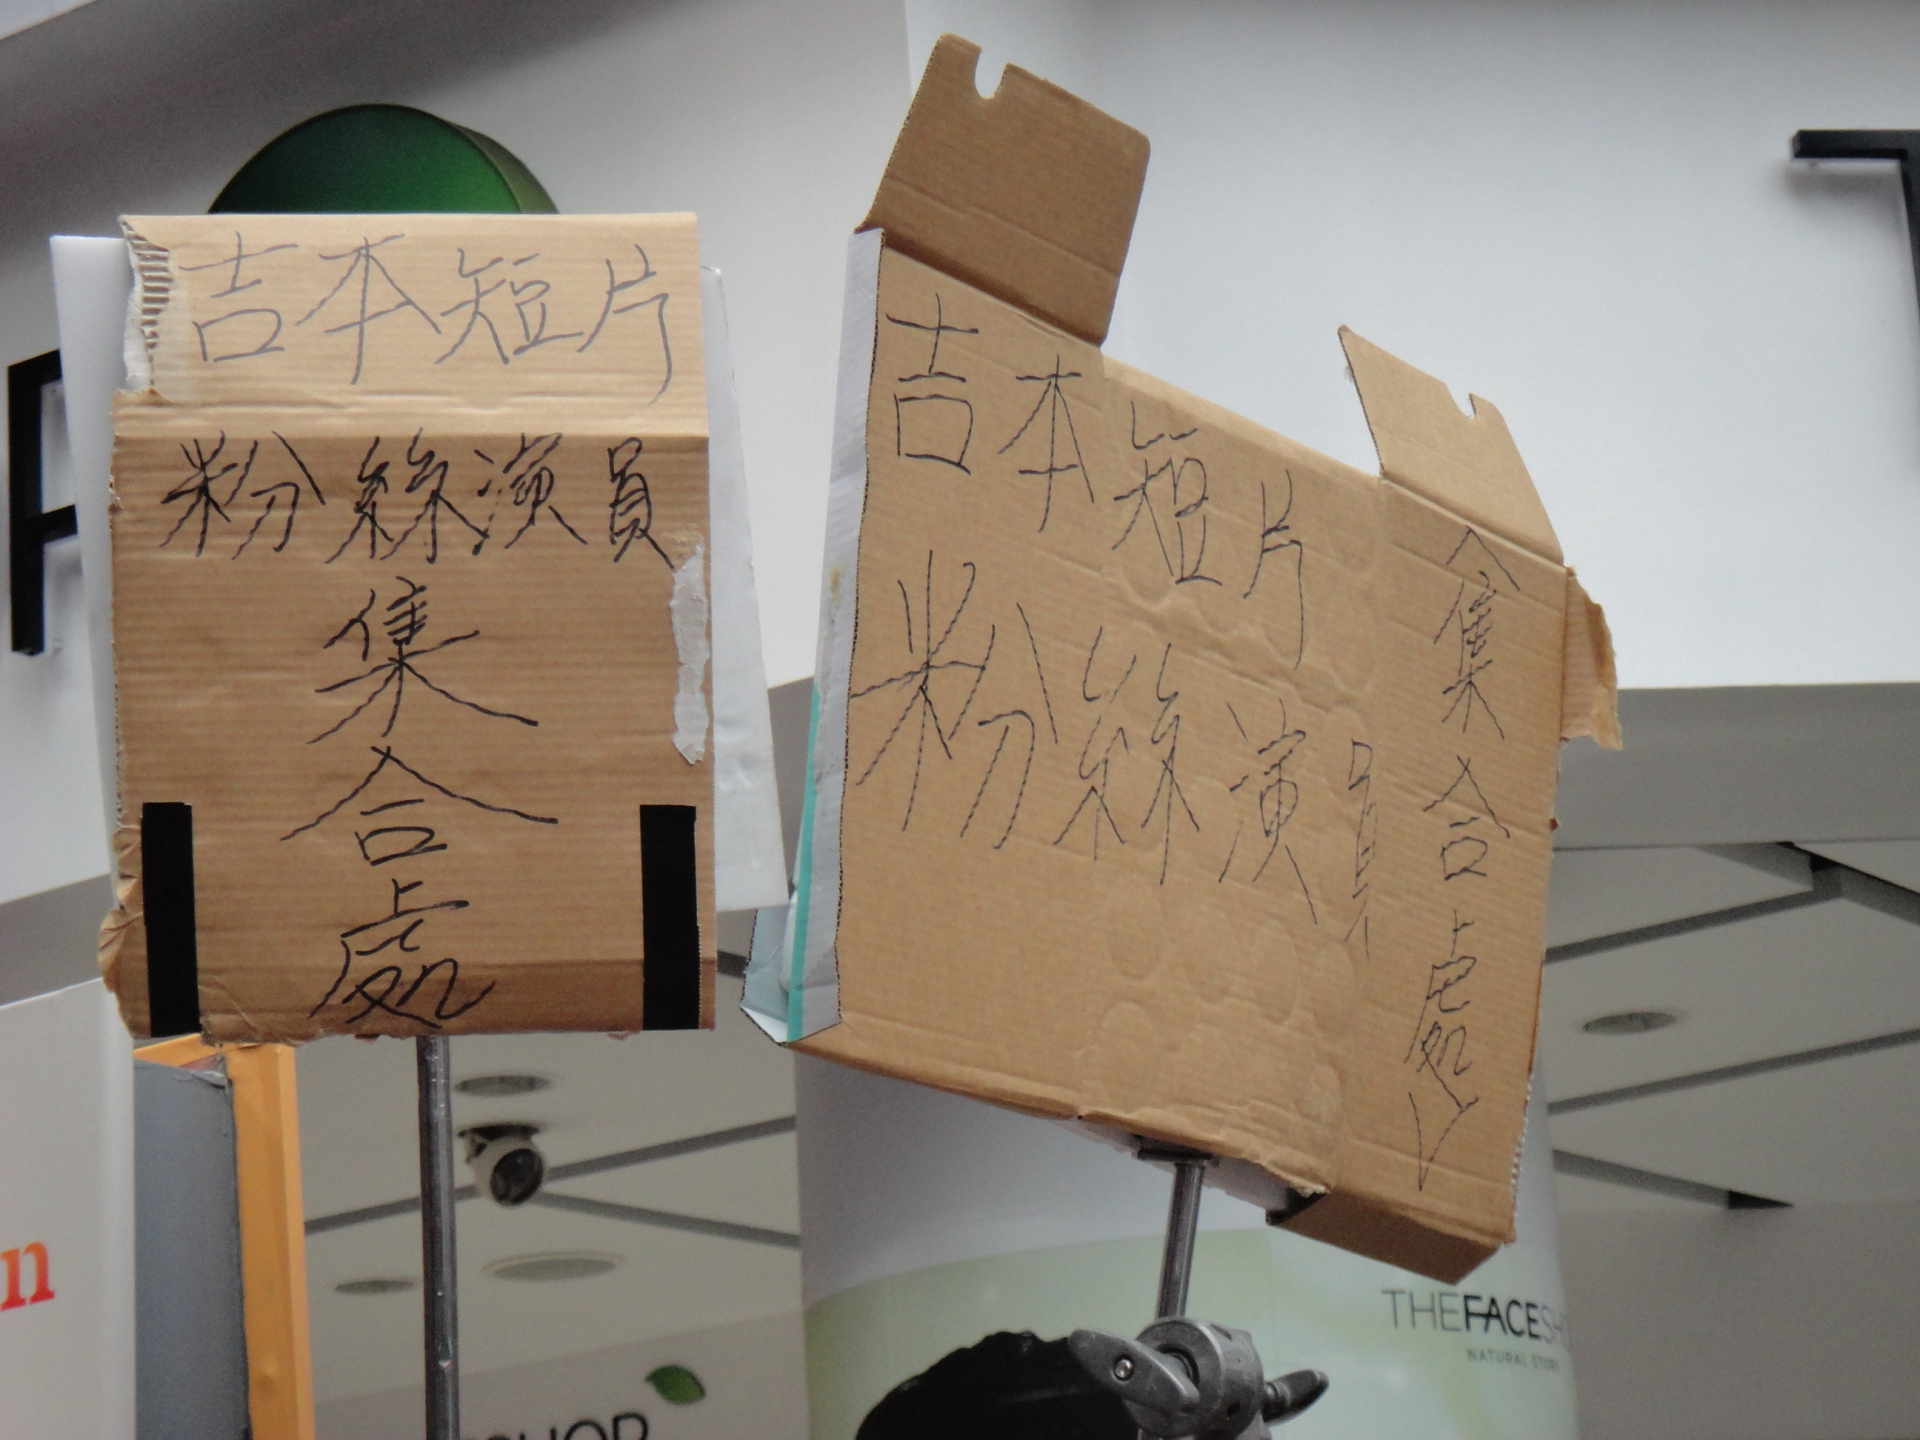 吉本短片
粉絲演員
集
合
處
吉本短片
粉絲演員
集合處
THEFACESHO
NATURAL STOR
SHOP
n